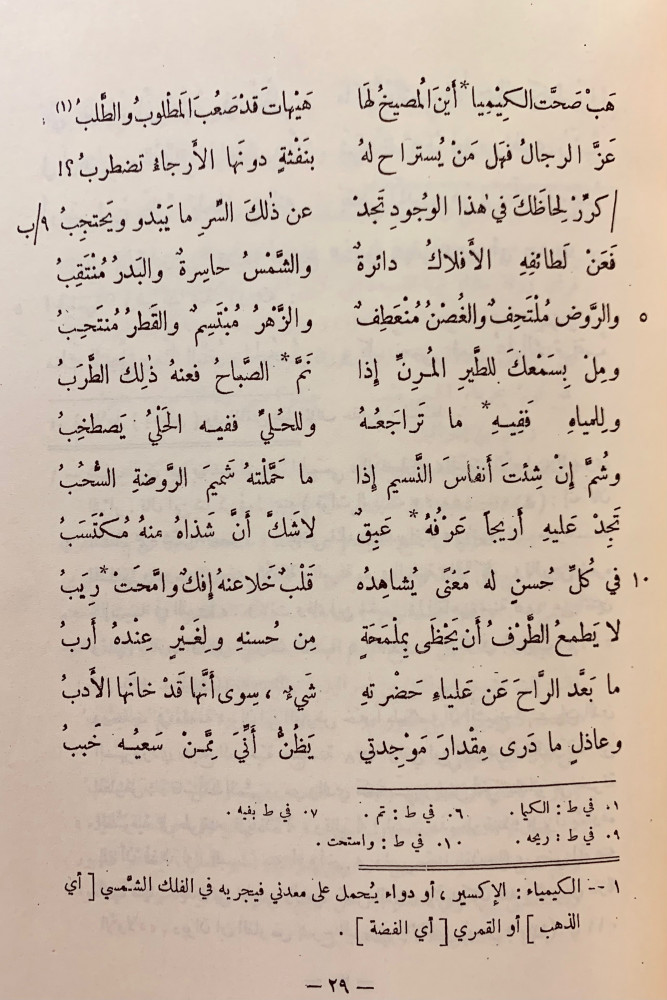 هَبْ صَحَّت الكِيْمِيا* أَيْنَ الُمصيخُ لهَا هَيْهاتَ قَدْ صَعُبَ الَمطْلوبُ والطَّلبُ (١)
عَزَّ الرجالُ فهَل مَنْ يُستراح لهُ بنَفْثةٍ دونَها الأَرجاءُ تضطربُ؟!
/ كرِّرْ لِحاظَكَ في هٰذا الوجُودِ تَجدْ عن ذٰلكَ السِّرِ ما يَبْدو ويَحتجِبُ ٩/ب
فَعَنْ لَطائفِهِ الأَفلاكُ دائرةٌ والشَّمْسُ حاسِرةٌ والبَدرُ مُنْتَقِبُ
٥ والرَّوض مُلْتَحِفٌ والغُصْنُ مُنْعَطِفٌ والزَّهْرُ مُبْتَسِمٌ والقَطرُ مُنتَحِبُ
ومِلْ بِسَمْعكَ للطَّيرِ المُرِنِّ إذا نَمَّ* الصَّباحُ فعنهُ ذٰلِكَ الطَّرَبُ
وللمياهِ فَفِيهِ* ما تَراجَعُهُ وللحُليِّ ففيه الحَلْيُ يَصطخِبُ
وشُمَّ إنْ شِئتَ أنفاسَ النَّسيم إذا ما حَمَّلتهُ شَميمَ الرَّوضةِ السُّحُبُ
تَجِدْ عَليهِ أريجاً عَرْفُهُ* عَبِقٌ لاشَكَّ أَنَّ شَذاهُ منهُ مُكْتَسَبُ
١٠ في كُلِّ حُسنٍ له مَعْنًى يُشاهِدُه قَلْبٌ خَلا عنهُ إفكٌ وامَّحَتْ* رِيَبُ
لا يَطمعُ الطَّرْفُ أن يَحْظَى بِمَلْمَحَةٍ مِن حُسنهِ ولِغَيْرٍ عِنْدَهُ أَربُ
ما بَعَّد الرَّاحَ عَن عَلياءِ حَضْرتهِ شَيءٌ ، سِوى أَنَّها قَدْ خانَها الأَدبُ
وعاذلٍ ما دَرى مِقْدارَ مَوْجِدتي يَظُنُّ أَنِّيَ مِمَّنْ سَعيُه خَببُ
٠١ في ط : الكيا . ٠٦ في ط : تم . ٠٧ في ط بفيه .
٠٩ في ط : ريحه . ٠١٠ في ط : واستحت .
١ -- الكيمياء : الإكسير ، أو دواء يُحمل على معدني فيجريه في الفلك الشمسي [ أي
الذهب ] أو القمري [ أي الفضة ] .
— ٢٩ —